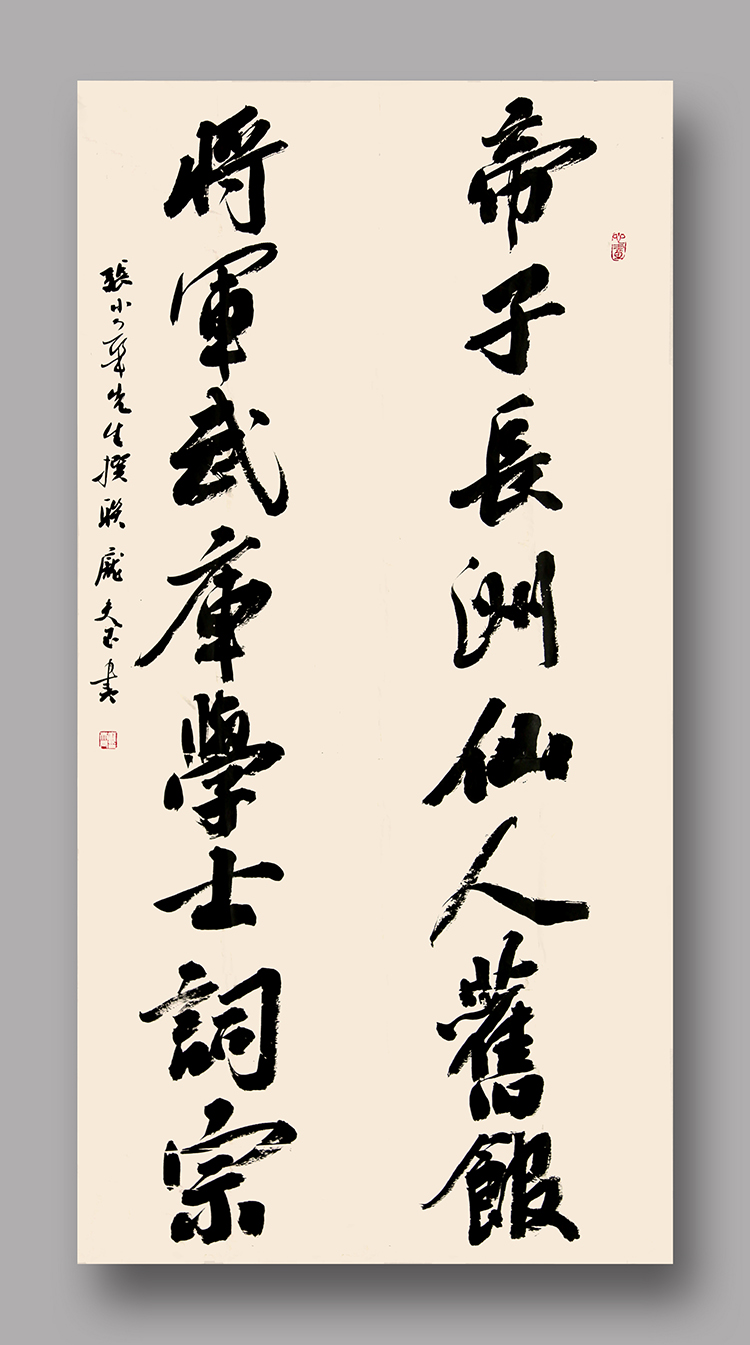 帝子長洲仙人舊館
将軍武庫學士詞宗
張小華先生撰聯 龐文書